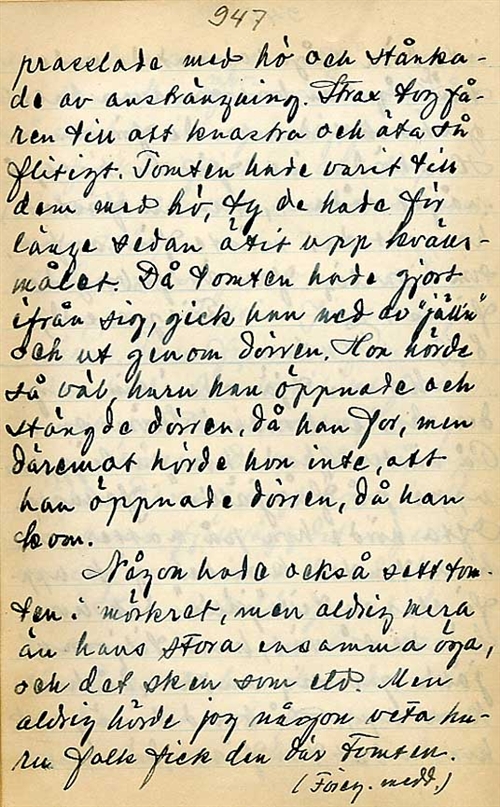 947
prasslade med hö och stånka-
de av ansträngning. Strax tog få-
ren till att knastra och äta så
flitigt. Tomten hade varit till
dem med hö, ty de hade för
länge sedan ätit upp kväns-
målet. Då tomten hade gjort
ifrån sig, gick han ned av "jälln"
och ut genom dörren. Hon hörde
så väl, huru han öppnade och
stängde dörren, då han for, men
däremot hörde hon inte, att
han öppnade dörren, då han
kom.
Någon hade också sett tom-
ten i mörkret, men aldrig mera
än hans stora ensamma öga,
och det sken som eld. Men
aldrig hörde jag någon veta hu-
ru folk fick den där Tomten.
(Föreg. medd.)